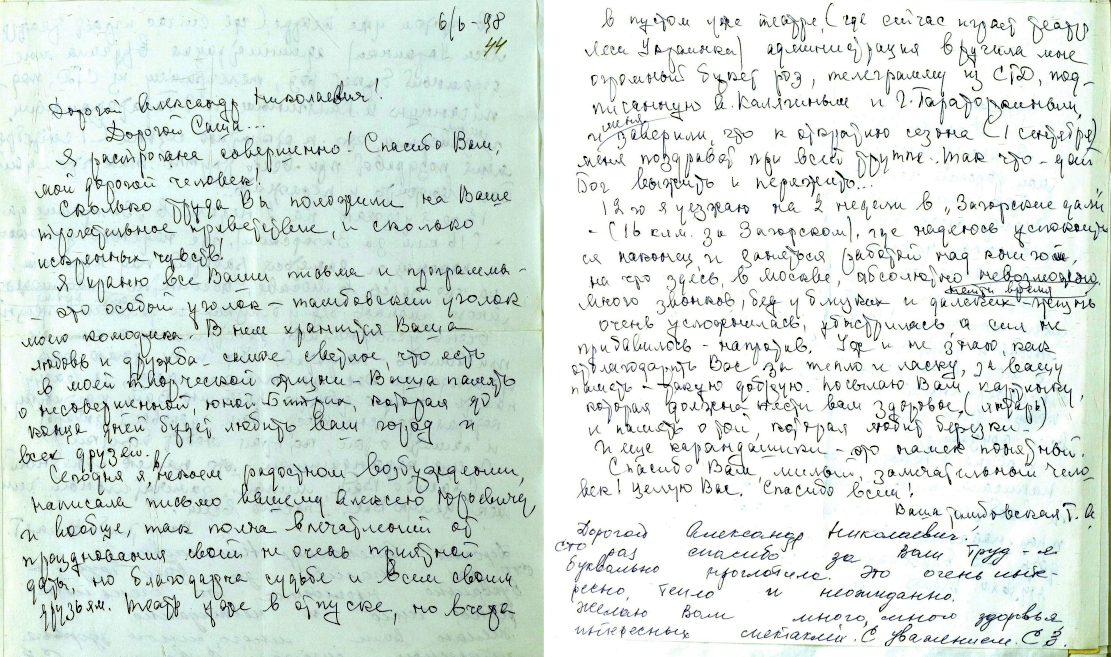 6/6-98
44
Дорогой Александр Николаевич!
Дорогой Саша...
Я растрогана совершенно! Спасибо Вам,
мой дорогой человек!
Сколько труда Вы положили на Ваше
трогательное приветствие, и сколько
искренних чувств!
Я храню все Ваши письма и программы -
это особый уголок - тамбовский уголок
моего комодика. В нем хранится Ваша
любовь и дружба - самое светлое, что есть
в моей творческой жизни - Ваша память
о несовершенной, юной Биатрис, которая до
конца дней будет любить ваш город и
всех друзей.
Сегодня я, в неком радостном возбуждении,
написала письмо вашему Алексею Юрьевичу,
и вообще, так полна впечатлений от
празднования своей не очень приятной
даты, но благодарна судьбе и всем своим
друзьям. Театр уже в отпуске, но вчера
в пустом уже театре, (где сейчас играет театр
Леси Украинки) администрация вручила мне
огромный букет роз, телеграмму из СТД, под-
писанную А. Калягиным и Г. Тараторкиным,
и меня заверили, что к открытию сезона (1 сентября)
меня поздравят при всей труппе. Так что - дай
Бог выжить и пережить...
12го я уезжаю на 2 недели в „Загорские дали"
- (16 клм. за Загорском), где надеюсь успокоить
ся наконец и заняться работой над книгой,
на что здесь, в Москве, абсолютно невозможно
найти время
много звонков, бед у близких и далеких - жизнь
очень усложнилась, убыстрилась а сил не
прибавилось - напротив. Уж и не знаю, как
отблагодарить Вас за тепло и ласку, за вашу
память - такую добрую. Посылаю Вам картинку,
которая должна нести вам здоровье, (янтарь)
и память о той, которая любит березки -
И еще карандашики - это намек понятный.
Спасибо Вам милый, замечательный чело-
век! Целую Вас. Спасибо всем!
Ваша тамбовская Т. А.
Дорогой Александр Николаевич!
Сто раз спасибо за Ваш труд - я
буквально проглотила. Это очень инте-
ресно, тепло и неожиданно.
Желаю Вам много, много здоровья
интересных спектаклей. С уважением. С З.